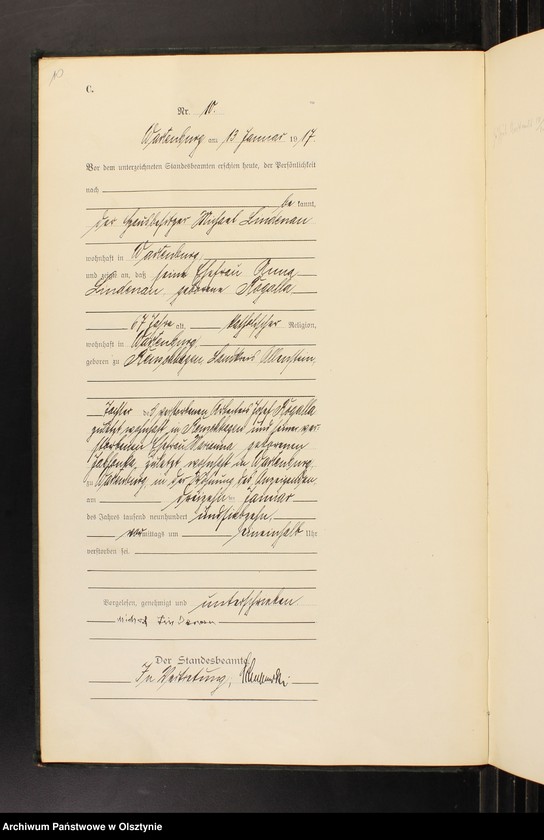 10
C.
Nr. 10.
Wartenburg am 13 Januar 1917.
Vor dem unterzeichneten Standesbeamten erschien heute, der Persönlichkeit
nach
be kannt,
der Hausbesitzer Michael Lindenau
wohnhaft in Wartenburg
und zeigte an, daß seine Ehefrau Anna
Lindenau geborene Rogalla
67 Jahre alt, katholischer Religion,
wohnhaft in Wartenburg
geboren zu Landkreis Allenstein,
Tochter des verstorbenen Arbeiters Josef Rogalla
zuletzt wohnhaft in und seiner ver-
storbenen Ehefrau geborenen
zuletzt wohnhaft in Wartenburg,
zu Wartenburg, in der Wohnung des Anzeigenden
am dreizehnten Januar
des Jahres tausend neunhundert und siebzehn
vormittags um Uhr
verstorben sei.
Vorgelesen, genehmigt und unterschrieben
Der Standesbeamte.
In Vertretung,
Archiwum Państwowe w Olsztynie